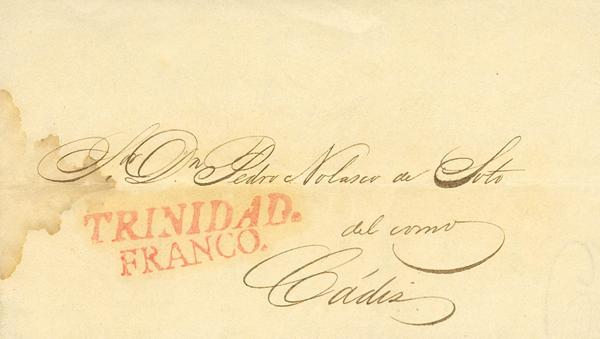 Sdor Dn. Pedro Nolasco de Soto
TRINIDAD.
FRANCO.
del como
Cádiz.